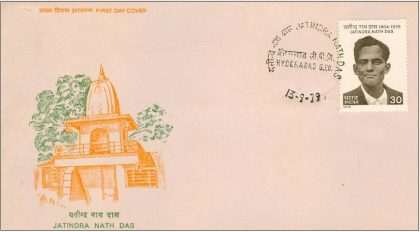 प्रथम दिवस आवरण FIRST DAY COVER
JATINDRA NATH DAS
HYDERABAD G.P.O.
13-9-79
यतीन्द्र नाथ दास 1904-1929
JATINDRA NATH DAS
भारत
INDIA
30
1979
यतीन्द्र नाथ दास
JATINDRA NATH DAS